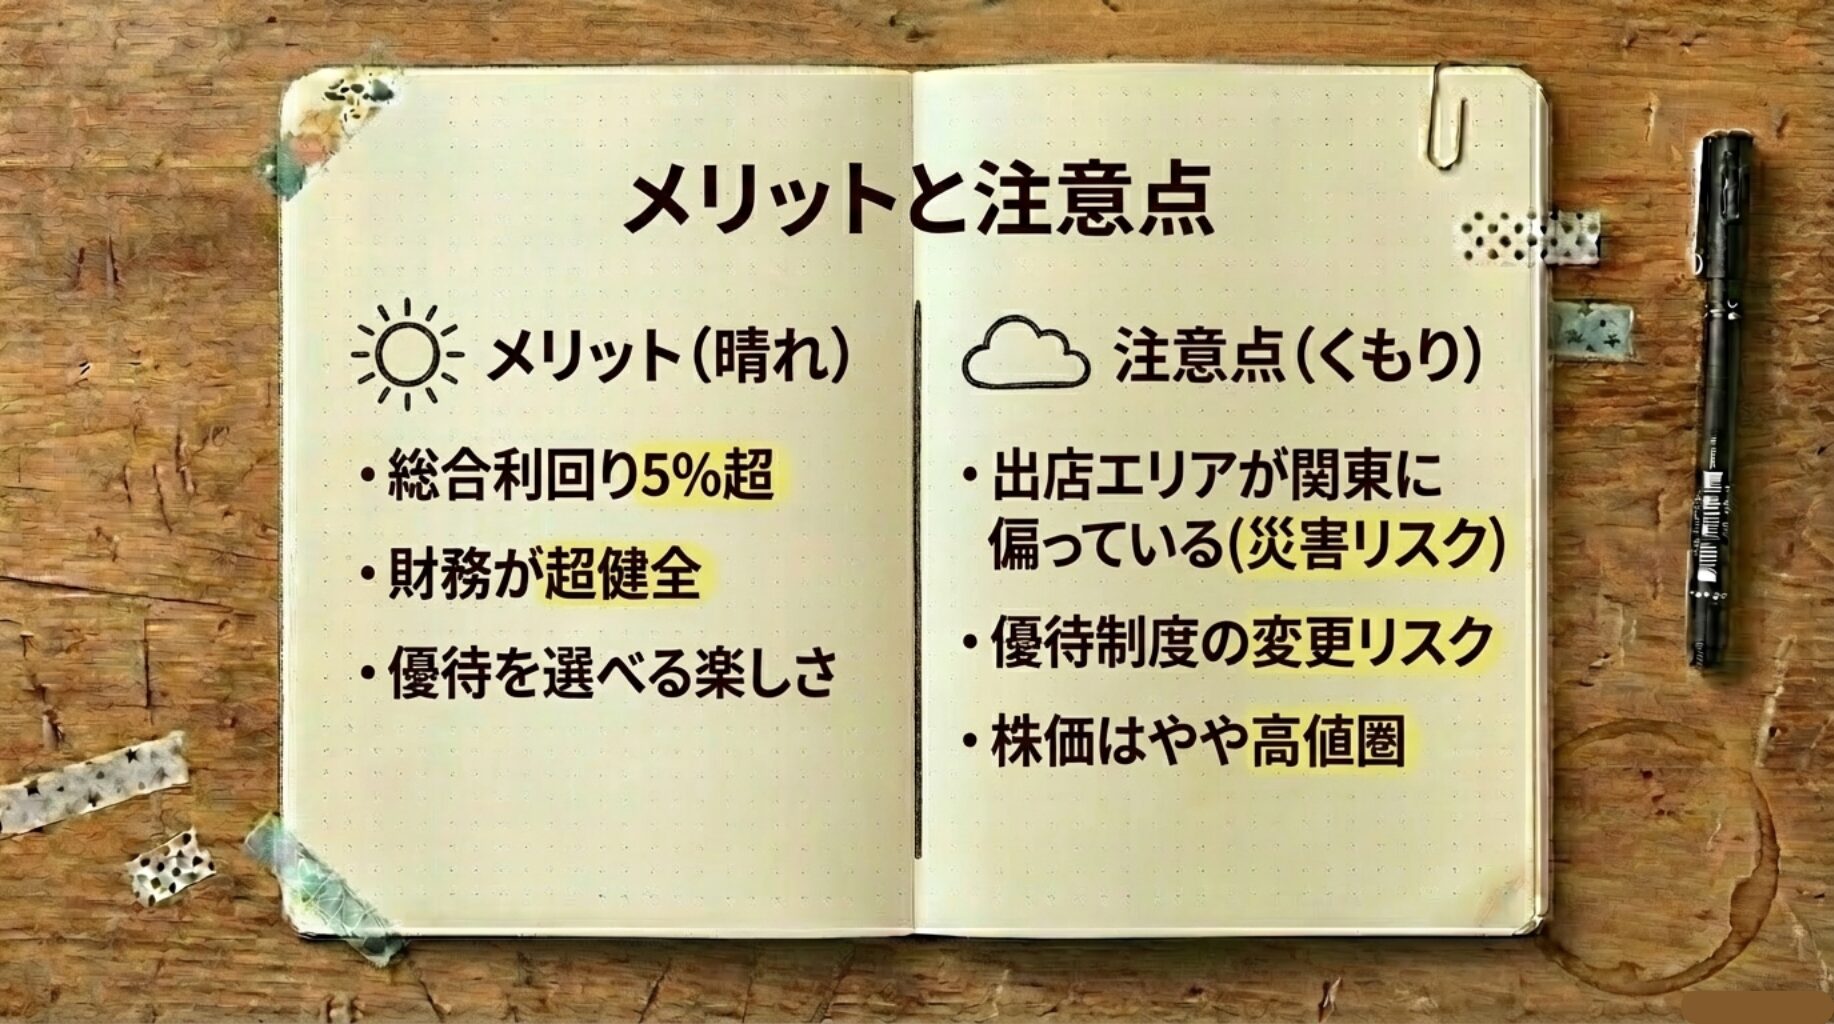 メリットと注意点
メリット（晴れ）
・総合利回り5%超
・財務が超健全
・優待を選べる楽しさ
注意点（くもり）
・出店エリアが関東に
偏っている(災害リスク)
・優待制度の変更リスク
・株価はやや高値圏